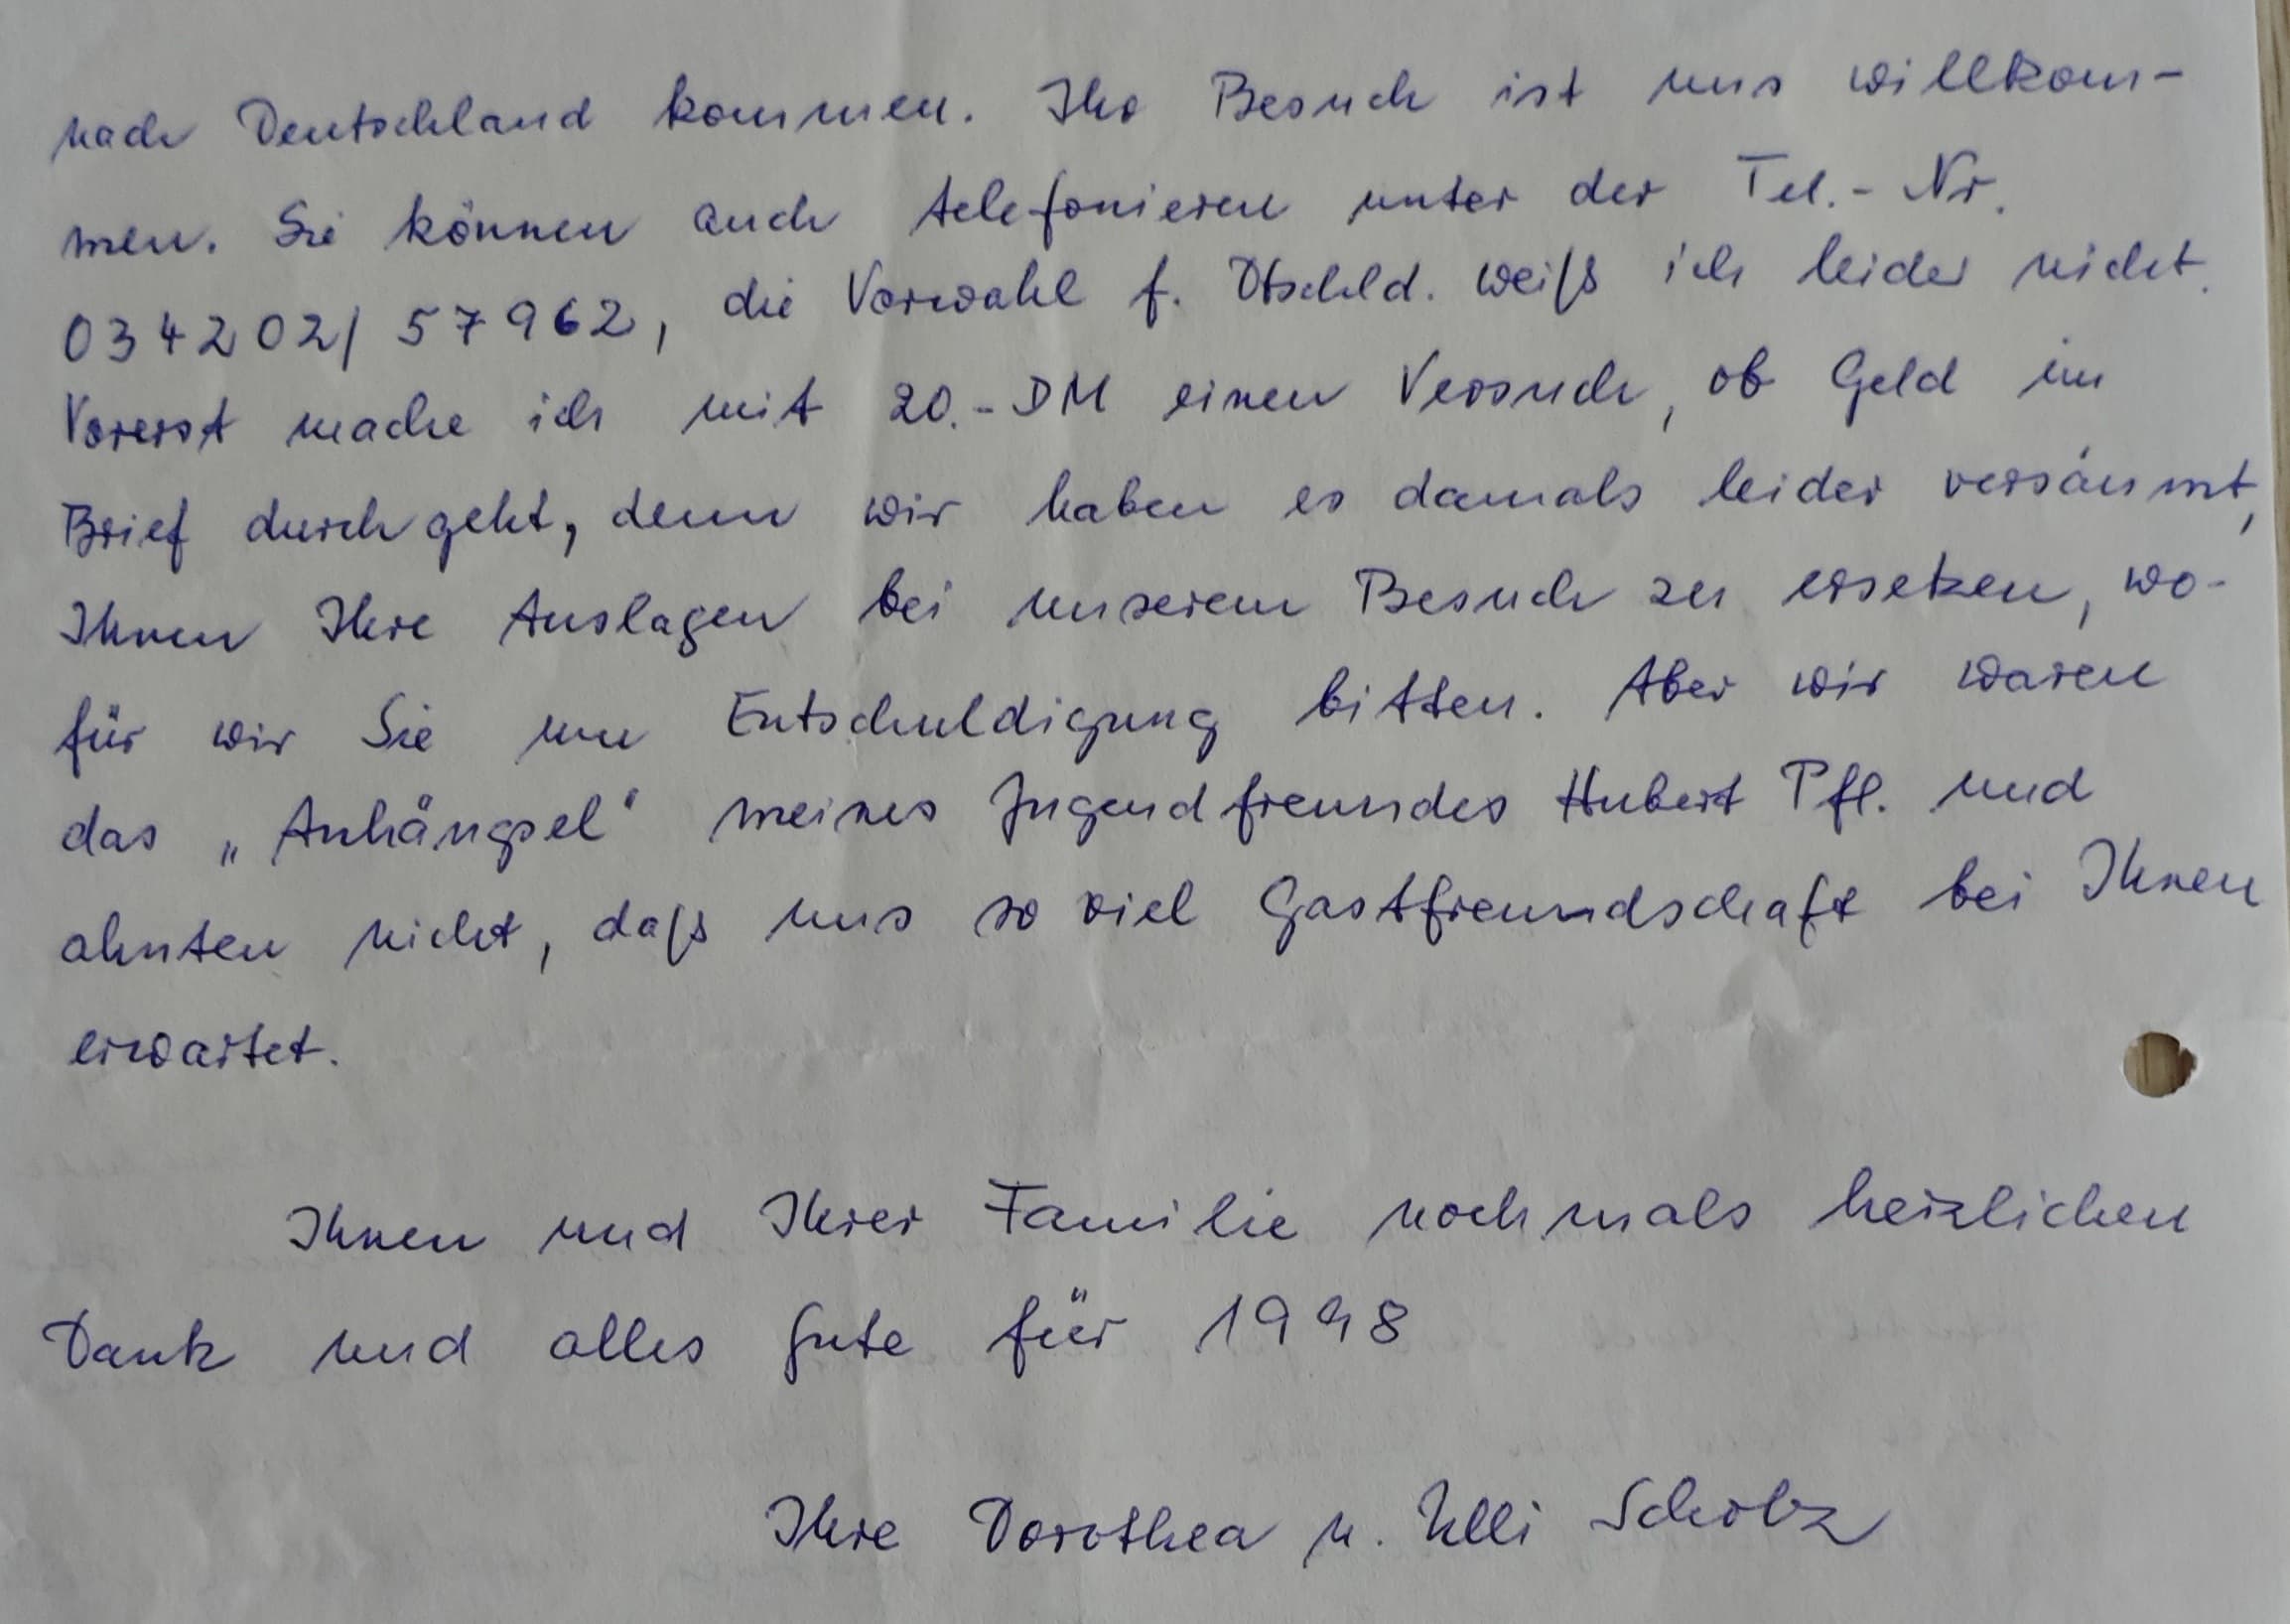 nach Deutschland kommen. Ihr Besuch ist uns willkom-
men. Sie können auch telefonieren unter der Tel.- Nr.
034202/ 57962, die Vorwahl f. Dtschld. weiß ich leider nicht.
Vorerst mache ich mit 20.- DM einen Versuch, ob Geld im
Brief durchgeht, denn wir haben es damals leider versäumt,
Ihnen Ihre Auslagen bei unserem Besuch zu ersetzen, wo-
für wir Sie um Entschuldigung bitten. Aber wir waren
das „Anhängsel" meines Jugendfreundes Hubert Pfl. und
ahnten nicht, daß uns so viel Gastfreundschaft bei Ihnen
erwartet.
Ihnen und Ihrer Familie nochmals herzlichen
Dank und alles Gute für 1998
Ihre Dorothea u. Ulli Scholz